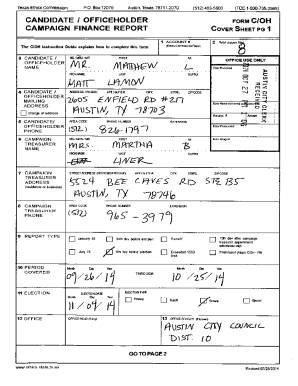 Texas Ethics Commission P.O. Box 12070 Austin, Texas 78711-2070 (512) 463-5800
CANDIDATE / OFFICEHOLDER FORM C/OH
CAMPAIGN FINANCE REPORT COVER SHEET PG 1
The C/OH Instruction Guide explains how to complete this form.
1 ACCOUNT #
2 Total pages filed
8
3 CANDIDATE / OFFICEHOLDER NAME
MR. MATHEW L
MATT LAMON
OFFICE USE ONLY
4 CANDIDATE / OFFICEHOLDER MAILING ADDRESS
2605 ENFIELD RD #217
AUSTIN, TX 78703
change of address
RECEIVED
5 CANDIDATE / OFFICEHOLDER PHONE
AREA CODE PHONE NUMBER EXTENSION
(512) 826-1797
6 CAMPAIGN TREASURER NAME
MRS. MARTHA B
LINER
7 CAMPAIGN TREASURER ADDRESS
5524 BEE CAVES RD STE B5
AUSTIN, TX 78746
8 CAMPAIGN TREASURER PHONE
AREA CODE PHONE NUMBER EXTENSION
(512) 965-3979
9 REPORT TYPE
January 15 30th day before election Runoff
July 15 8th day before election
10 PERIOD COVERED
Month Day Year THROUGH Month Day Year
09/26/14 10/25/14
11 ELECTION
ELECTION DATE ELECTION TYPE
Month Day Year
11/04/14 Primary Runoff General Special
12 OFFICE OFFICE HELD 13 OFFICE SOUGHT
AUSTIN CITY COUNCIL
DIST. 10
GO TO PAGE 2
www.ethics.state.tx.us